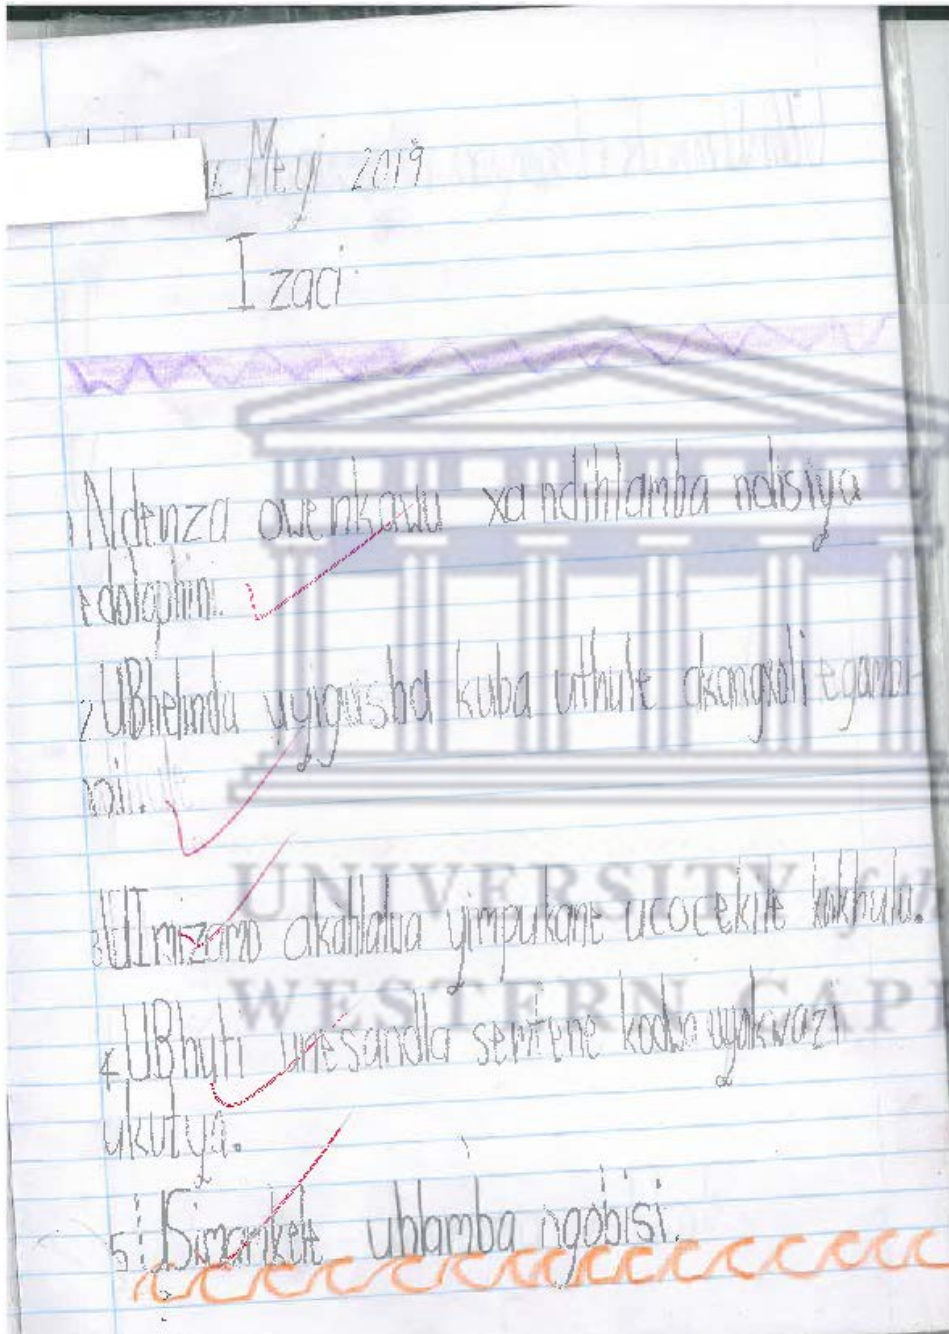 Meyi 2019
Izaci
1 Ndenza owenkawu xa ndihlamba ndisiya
edolophini.
2 UBhelinda uyigusha kuba uthule akangxoli egumbi
nin.
3 UImizamo akahlalwa yimpukane ucocekile kakhulu.
4 UBhuti unesandla semfene kodwa uyakwazi
ukutya.
5 USimamkele uhlamba ngobisi.
UNIVERSITY of the
WESTERN CAPE